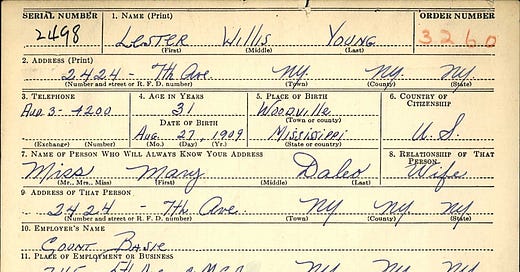 SERIAL NUMBER 1. NAME (Print) ORDER NUMBER
2498 LESTER WILLIS YOUNG 3260
(First) (Middle) (Last)
2. ADDRESS (Print)
2424 - 7th Ave. NY. NY. NY.
(Number and street or R. F. D. number) (Town) (County) (State)
3. TELEPHONE 4. AGE IN YEARS 5. PLACE OF BIRTH 6. COUNTRY OF
Aud 3-4200 31 Woodville CITIZENSHIP
DATE OF BIRTH (Town or county)
Aug. 27, 1909 Mississippi U. S.
(Exchange) (Number) (Mo.) (Day) (Yr.) (State or country)
7. NAME OF PERSON WHO WILL ALWAYS KNOW YOUR ADDRESS 8. RELATIONSHIP OF THAT
PERSON
Miss Mary Wife
(Mr., Mrs., Miss) (First) (Middle) (Last)
9. ADDRESS OF THAT PERSON
2424 - 7th Ave NY NY NY
(Number and street or R. F. D. number) (Town) (County) (State)
10. EMPLOYER'S NAME
Count Basie
11. PLACE OF EMPLOYMENT OR BUSINESS